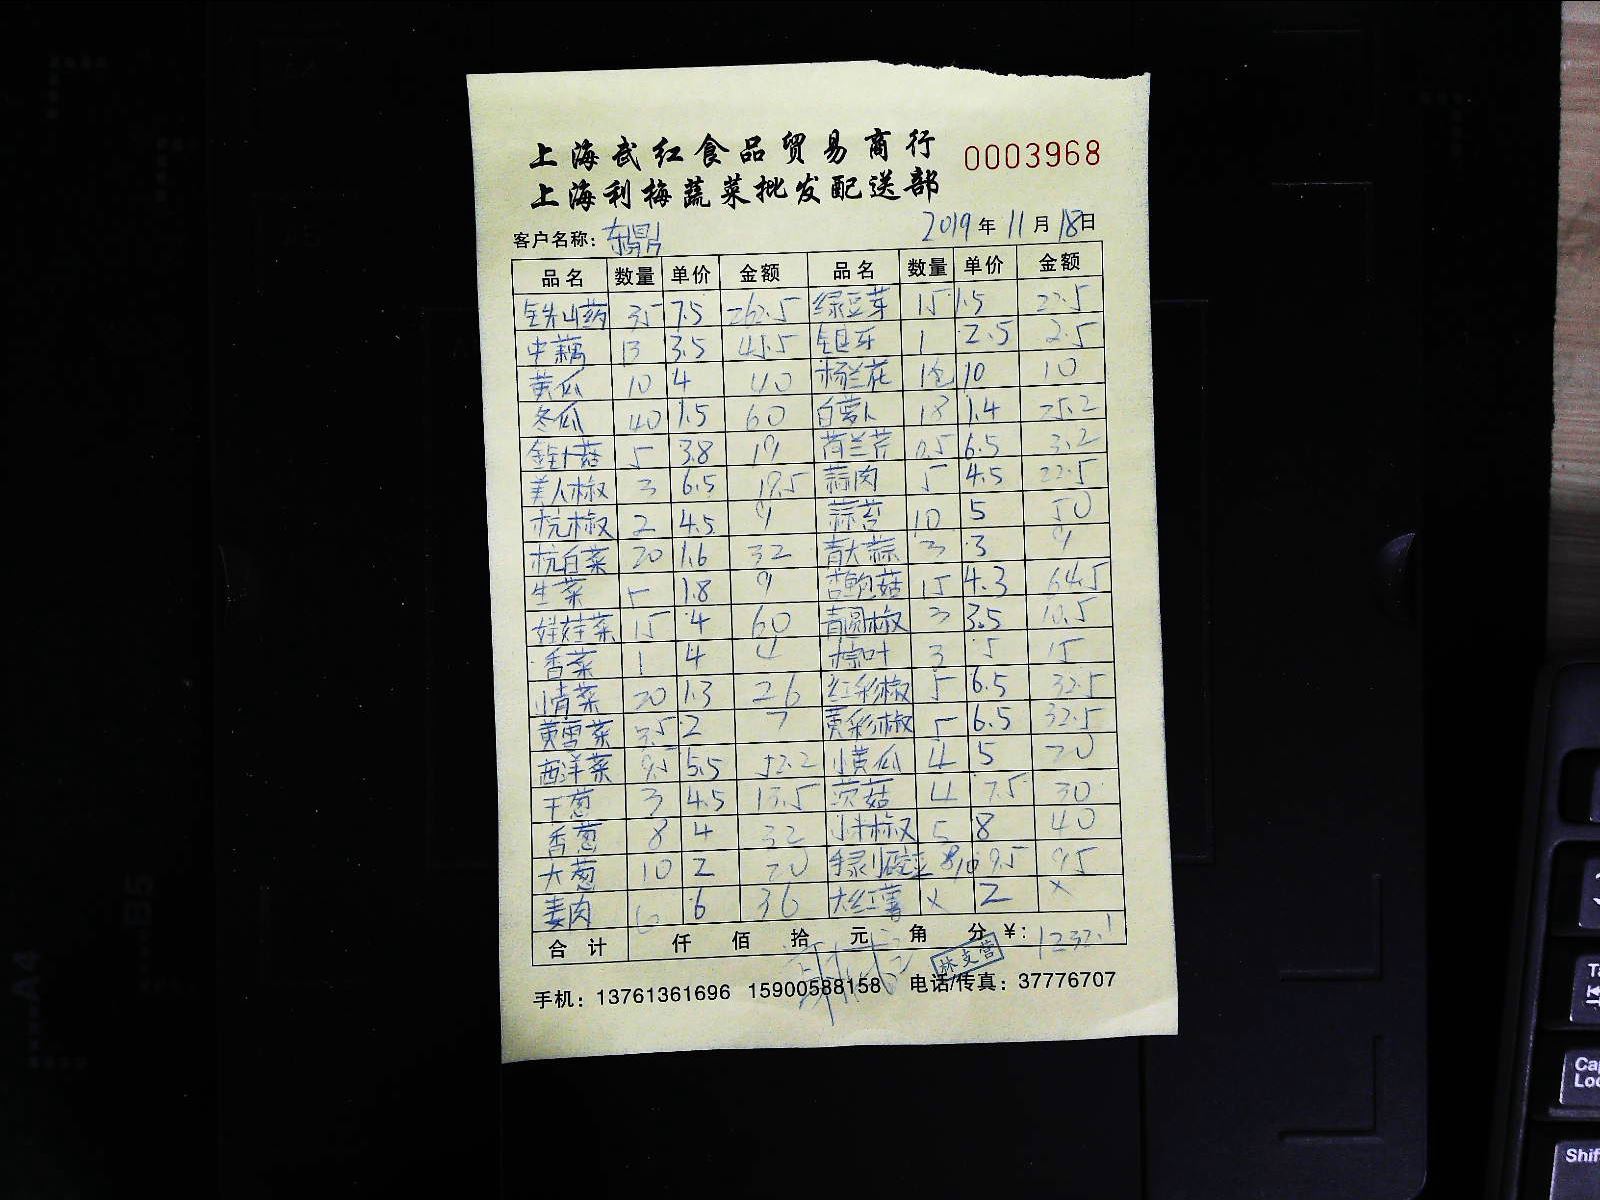 上海武红食品贸易商行 0003968
上海利梅蔬菜批发配送部
客户名称：东鼎 2019年11月18日
品名 数量 单价 金额 品名 数量 单价 金额
铁山药 35 7.5 262.5 绿豆芽 15 1.5 22.5
中藕 13 3.5 45.5 1 2.5 2.5
黄瓜 10 4 40 杨兰花 1包 10 10
冬瓜 40 1.5 60 白萝卜 18 1.4 25.2
金针菇 5 3.8 19 荷兰芹 0.5 6.5 3.2
美人椒 3 6.5 19.5 蒜肉 5 4.5 22.5
杭椒 2 4.5 9 蒜苔 10 5 50
杭白菜 20 1.6 32 青大蒜 3 3 9
生菜 5 1.8 9 杏鲍菇 15 4.3 64.5
娃娃菜 15 4 60 青圆椒 3 3.5 10.5
香菜 1 4 4 棕叶 3 5 15
小青菜 20 1.3 26 红彩椒 5 6.5 32.5
黄雪菜 3.5 2 7 黄彩椒 5 6.5 32.5
西洋菜 9.5 5.5 52.2 小黄瓜 4 5 20
干葱 3 4.5 13.5 茨菇 4 7.5 30
香葱 8 4 32 小米椒 5 8 40
大葱 10 2 20 9.5 9.5
姜肉 6 6 36 大红薯 x 2 x
合计 仟 佰 拾 元 角 分 ¥: 1232.1
林支营
手机：13761361696 15900588158 电话/传真：37776707
A4
B5
Shif